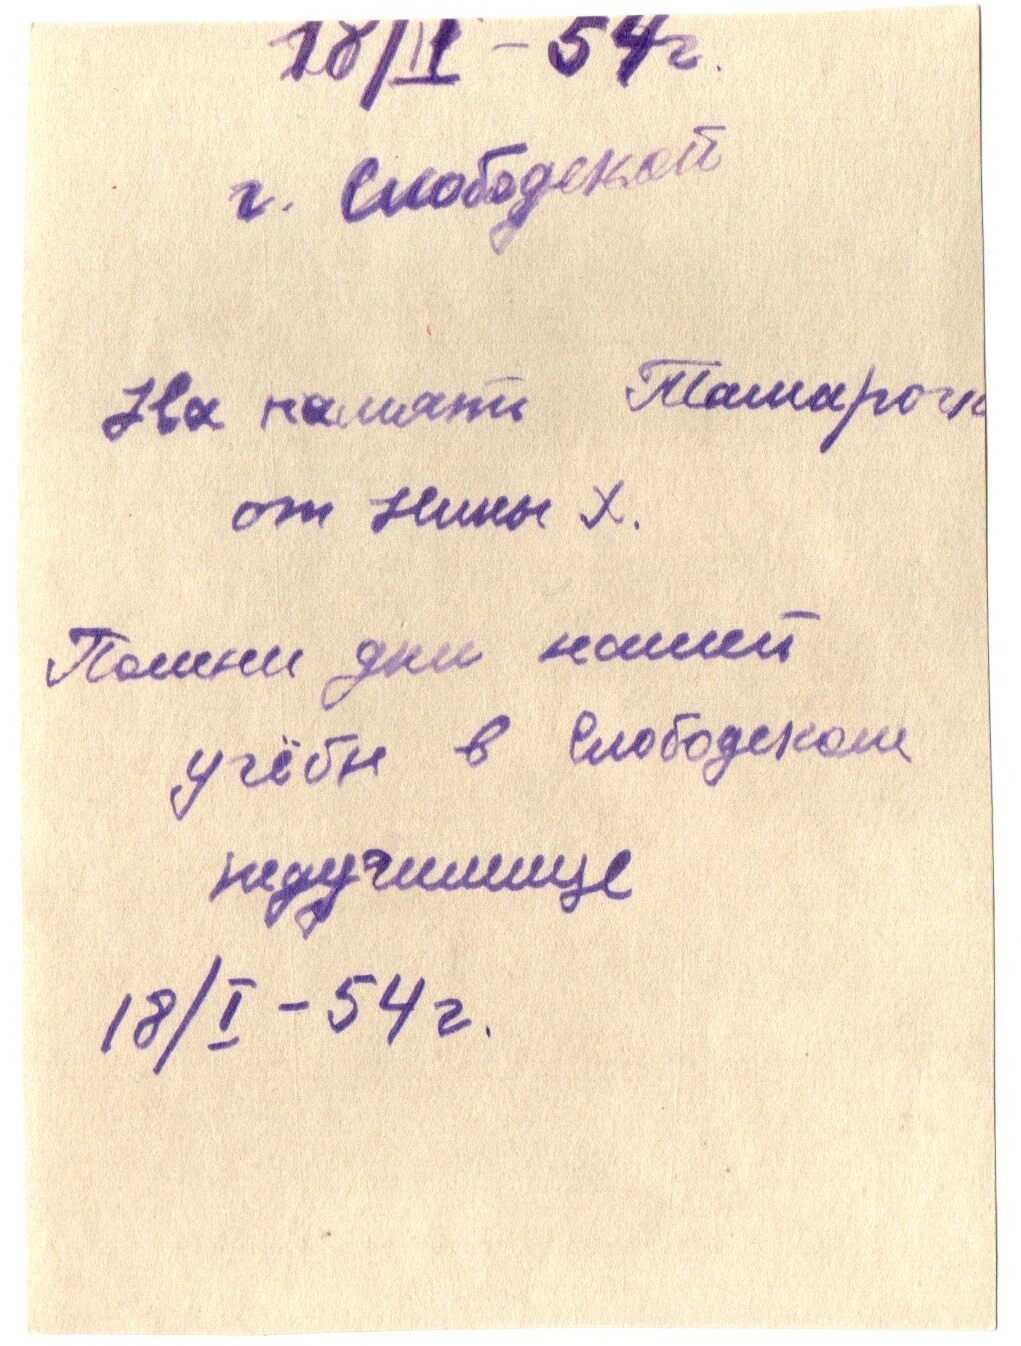 18/II - 54г.
г. Слободской
На память Тамарочк
от Нины Х.
Помни дни нашей
учёбы в Слободском
педучилище
18/I - 54 г.